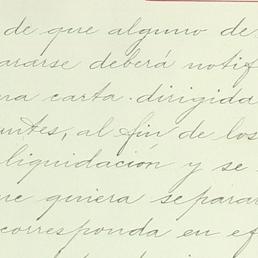 de que alguno de
ararse deberá notif
na carta dirigida
ntes, al fin de los
liquidación y se
ue quiera separar
corresponda en ef